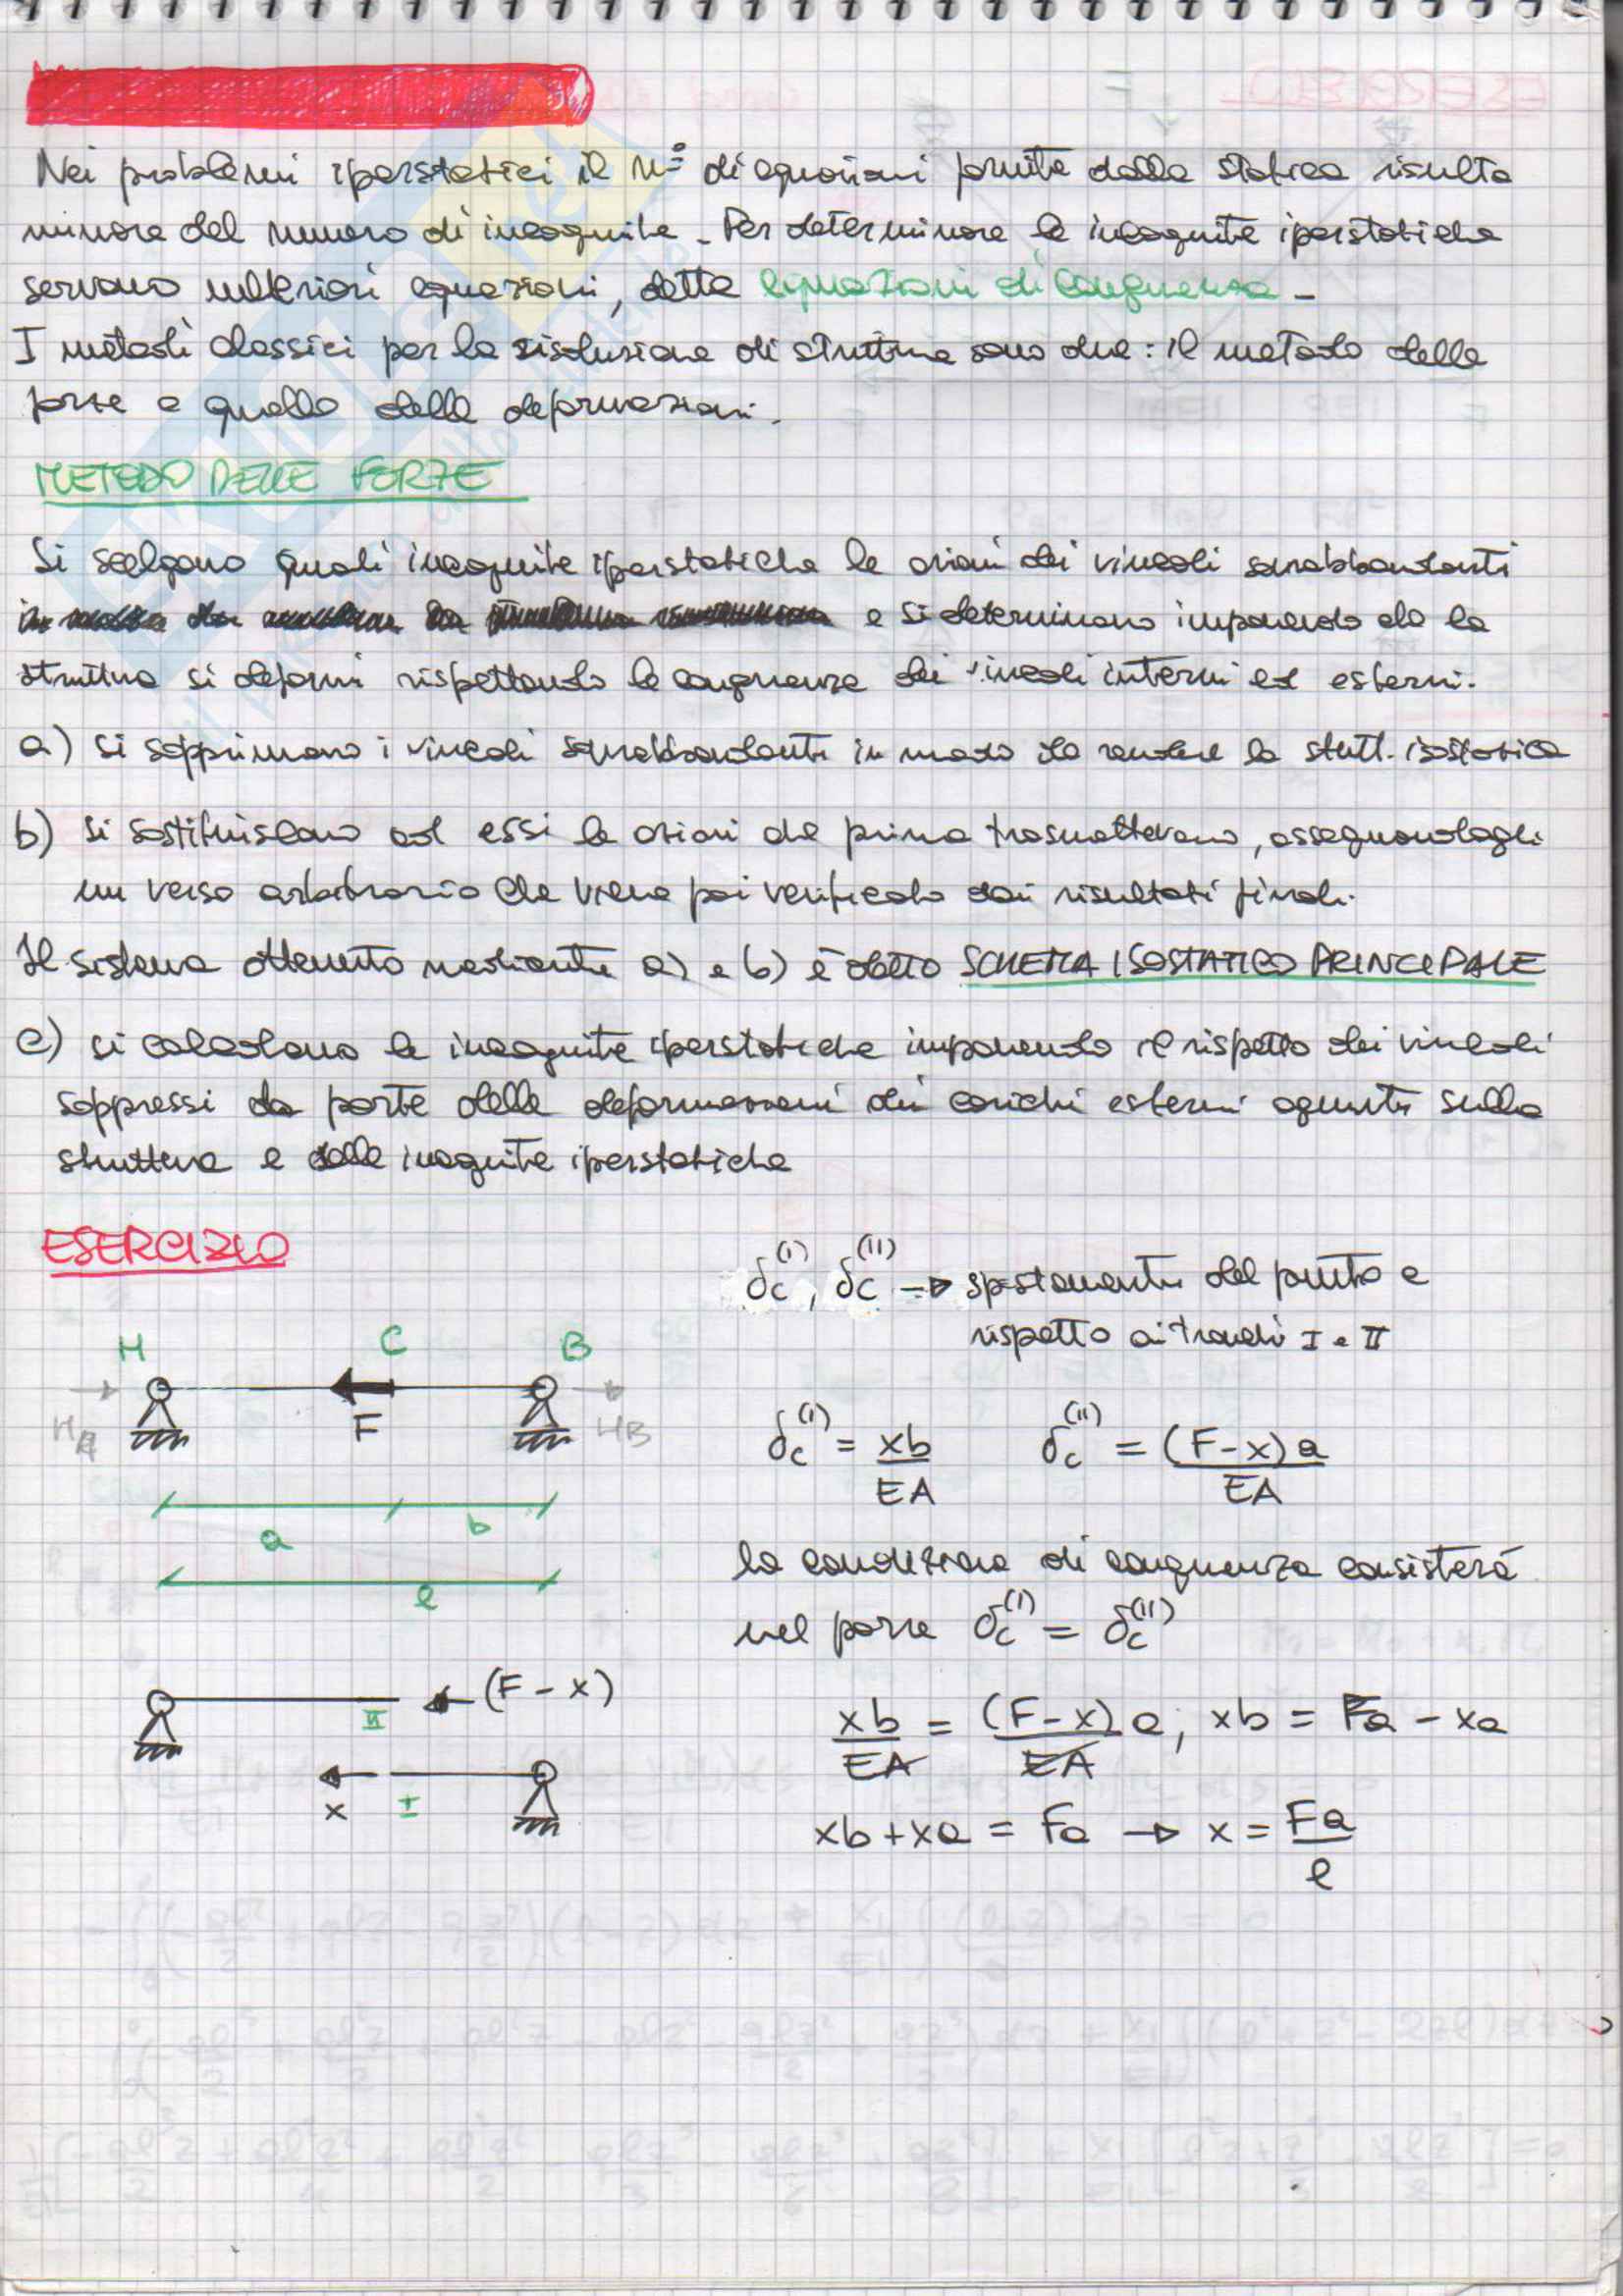 Nei problemi iperstatici il n° di equazioni fornite dalla statica risulta
minore del numero di incognite - Per determinare le incognite iperstatiche
servono ulteriori equazioni, dette equazioni di congruenza -
I metodi classici per la risoluzione di strutture sono due: il metodo delle
forze e quello delle deformazioni.
METODO DELLE FORZE
Si scelgono quali incognite iperstatiche le azioni dei vincoli sovrabbondanti
e si determinano imponendo che la
struttura si deformi rispettando le congruenze dei vincoli interni ed esterni.
a) si sopprimono i vincoli sovrabbondanti in modo da rendere la strutt. isostatica
b) si sostituiscono ad essi le azioni che prima trasmettevano, assegnandogli
un verso arbitrario che viene poi verificato dai risultati finali.
Il sistema ottenuto mediante a) e b) è detto SCHEMA ISOSTATICO PRINCIPALE
c) si calcolano le incognite iperstatiche imponendo il rispetto dei vincoli
soppressi da parte delle deformazioni dei carichi esterni agenti sulla
struttura e delle incognite iperstatiche
ESERCIZIO
δc(I), δc(II) → spostamenti del punto c
rispetto ai tronchi I e II
H C B
F HB
a b
l
δc(I) = xb/EA δc(II) = (F-x)a/EA
la condizione di congruenza consisterà
nel porre δc(I) = δc(II)
(F-x)
II
x I
xb/EA = (F-x)a/EA; xb = Fa - xa
xb+xa = Fa → x = Fa/l